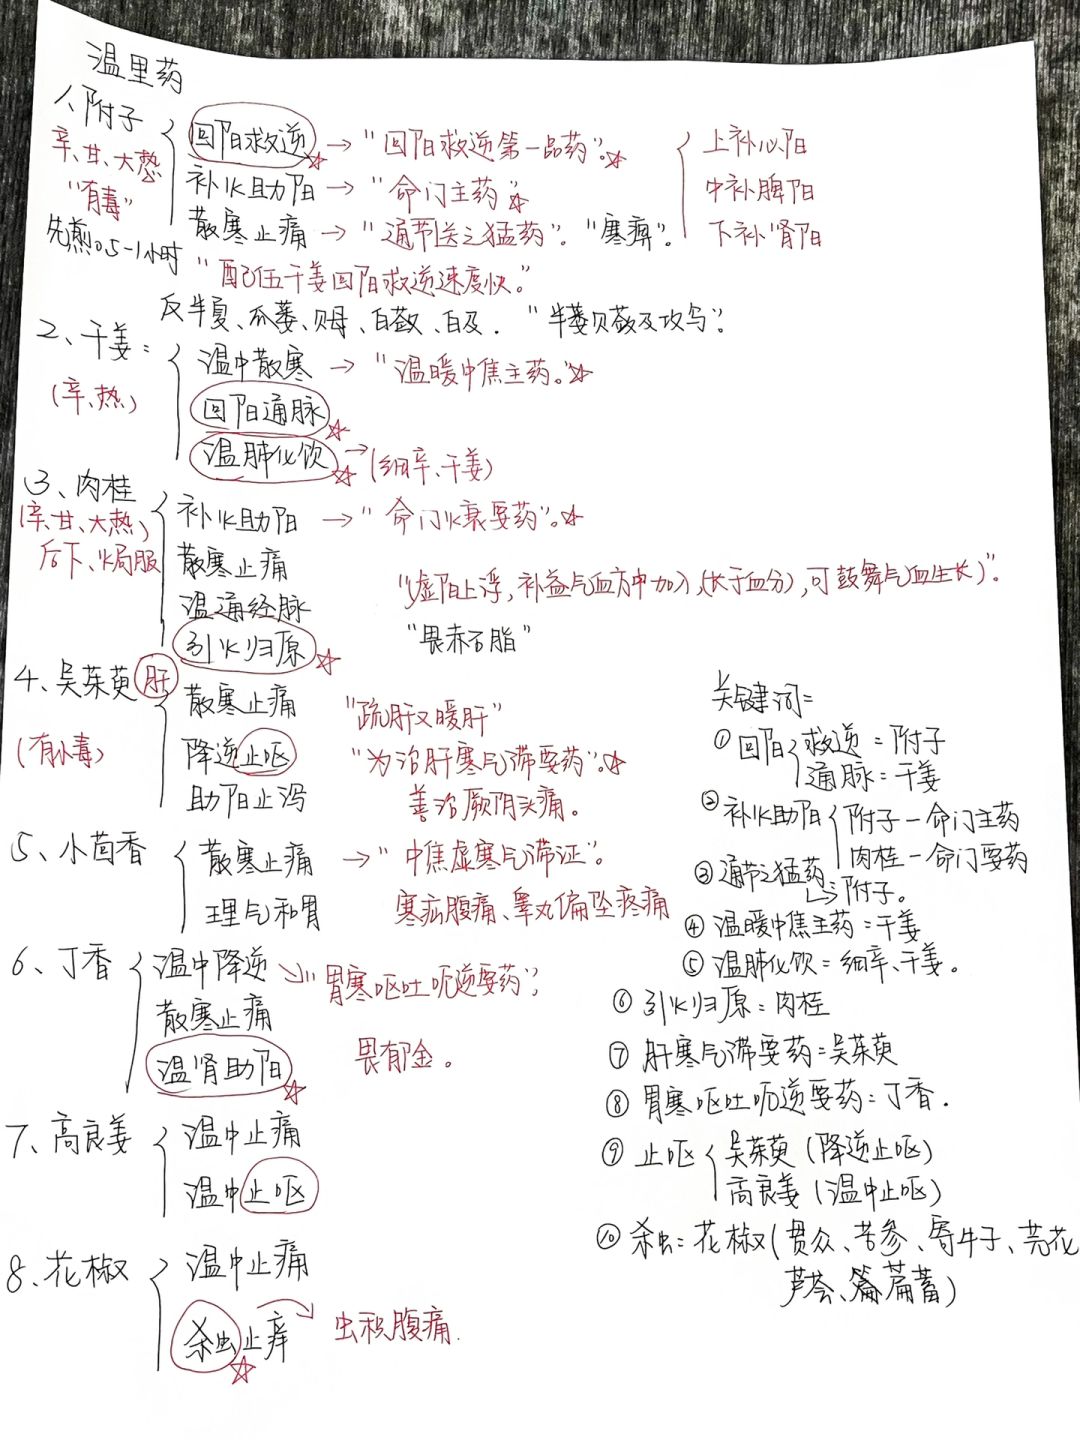 温里药
1、附子
辛、甘、大热
"有毒"
先煎0.5-1小时
回阳救逆 → "回阳救逆第一品药"。☆
补火助阳 → "命门主药"☆
散寒止痛 → "通节送之猛药"。"寒痹"。
上补心阳
中补脾阳
下补肾阳
"配伍干姜回阳救逆速度快。"
反半夏、瓜蒌、贝母、白蔹、白及. "半蒌贝蔹及攻乌".
2、干姜:
(辛、热)
温中散寒 → "温暖中焦主药。"☆
回阳通脉☆
温肺化饮☆ → (细辛、干姜)
3、肉桂
(辛、甘、大热)
后下、焗服
补火助阳 → "命门火衰要药"。☆
散寒止痛
温通经脉
引火归原☆
"(虚阳上浮,补益气血方中加入,(长于血分),可鼓舞气血生长)"。
"畏赤石脂"
4、吴茱萸 肝
(有小毒)
散寒止痛
降逆止呕
助阳止泻
"疏肝又暖肝"
"为治肝寒气滞要药"。☆
善治厥阴头痛。
5、小茴香
散寒止痛 → "中焦虚寒气滞证"。
理气和胃
寒疝腹痛、睾丸偏坠疼痛
6、丁香
温中降逆 → "胃寒呕吐呃逆要药";
散寒止痛
温肾助阳☆
畏郁金。
7、高良姜
温中止痛
温中止呕
8、花椒
温中止痛
杀虫止痒☆ → 虫积腹痛.
关键词:
① 回阳 救逆:附子
通脉:干姜
② 补火助阳 附子—命门主药
肉桂—命门要药
③ 通节之猛药
↳附子。
④ 温暖中焦主药:干姜
⑤ 温肺化饮:细辛、干姜。
⑥ 引火归原:肉桂
⑦ 肝寒气滞要药:吴茱萸
⑧ 胃寒呕吐呃逆要药:丁香.
⑨ 止呕 吴茱萸(降逆止呕)
高良姜(温中止呕)
⑩ 杀虫:花椒(贯众、苦参、牵牛子、芫花
芦荟、萹蓄)